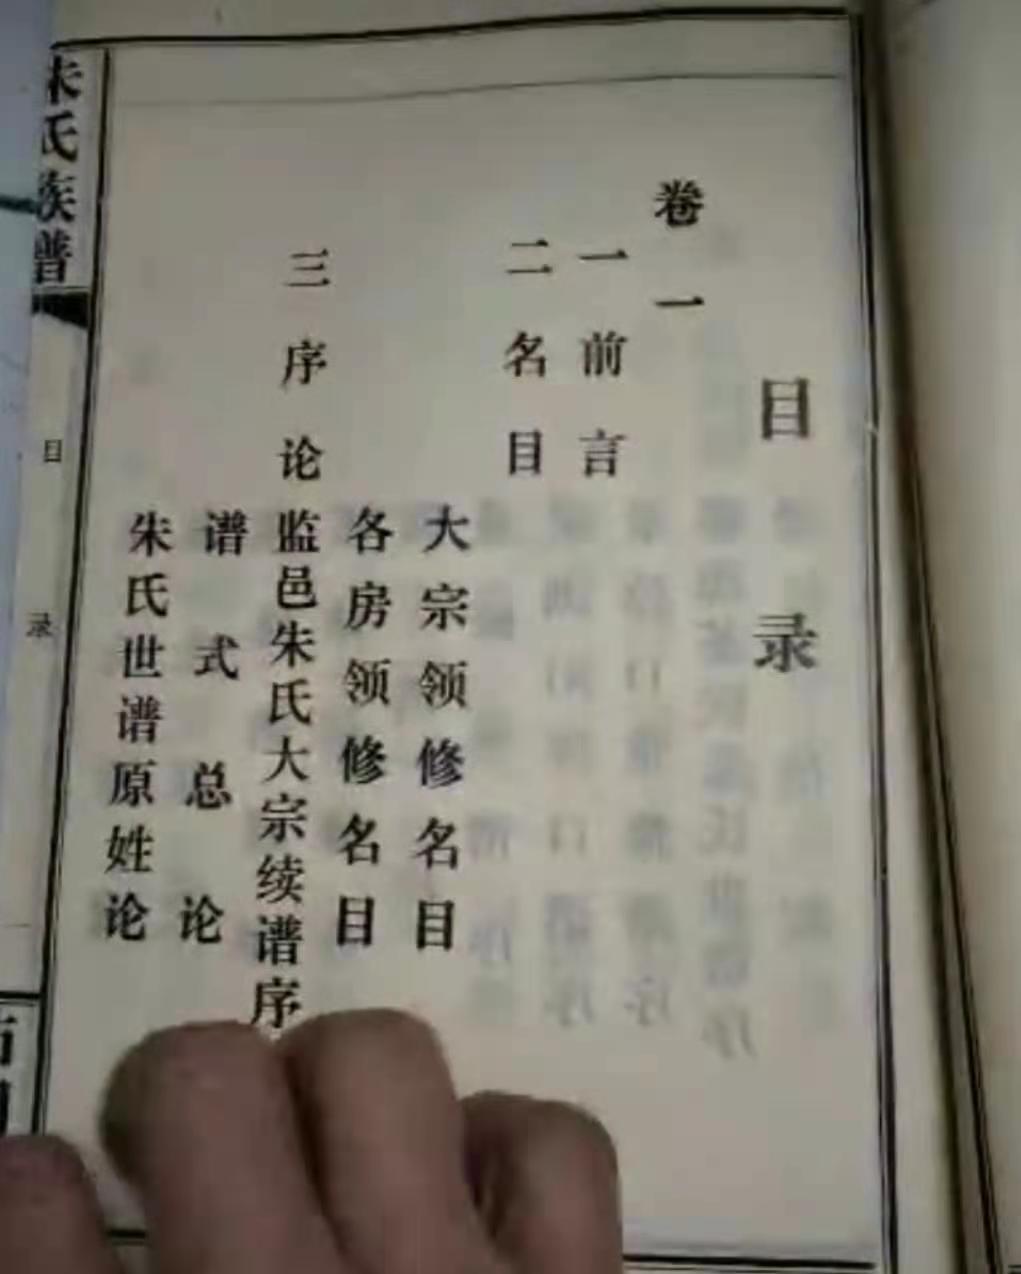 目录
卷一
一前言
二名目
大宗领修名目
各房领修名目
三序论
监邑朱氏大宗续谱序
谱式总论
朱氏世谱原姓论
朱氏族谱
目录